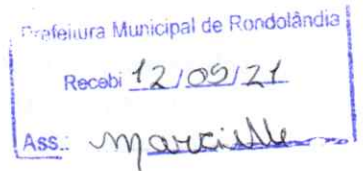 Prefeitura Municipal de Rondolândia
Recebi 12/05/21
Ass.: Marcielle